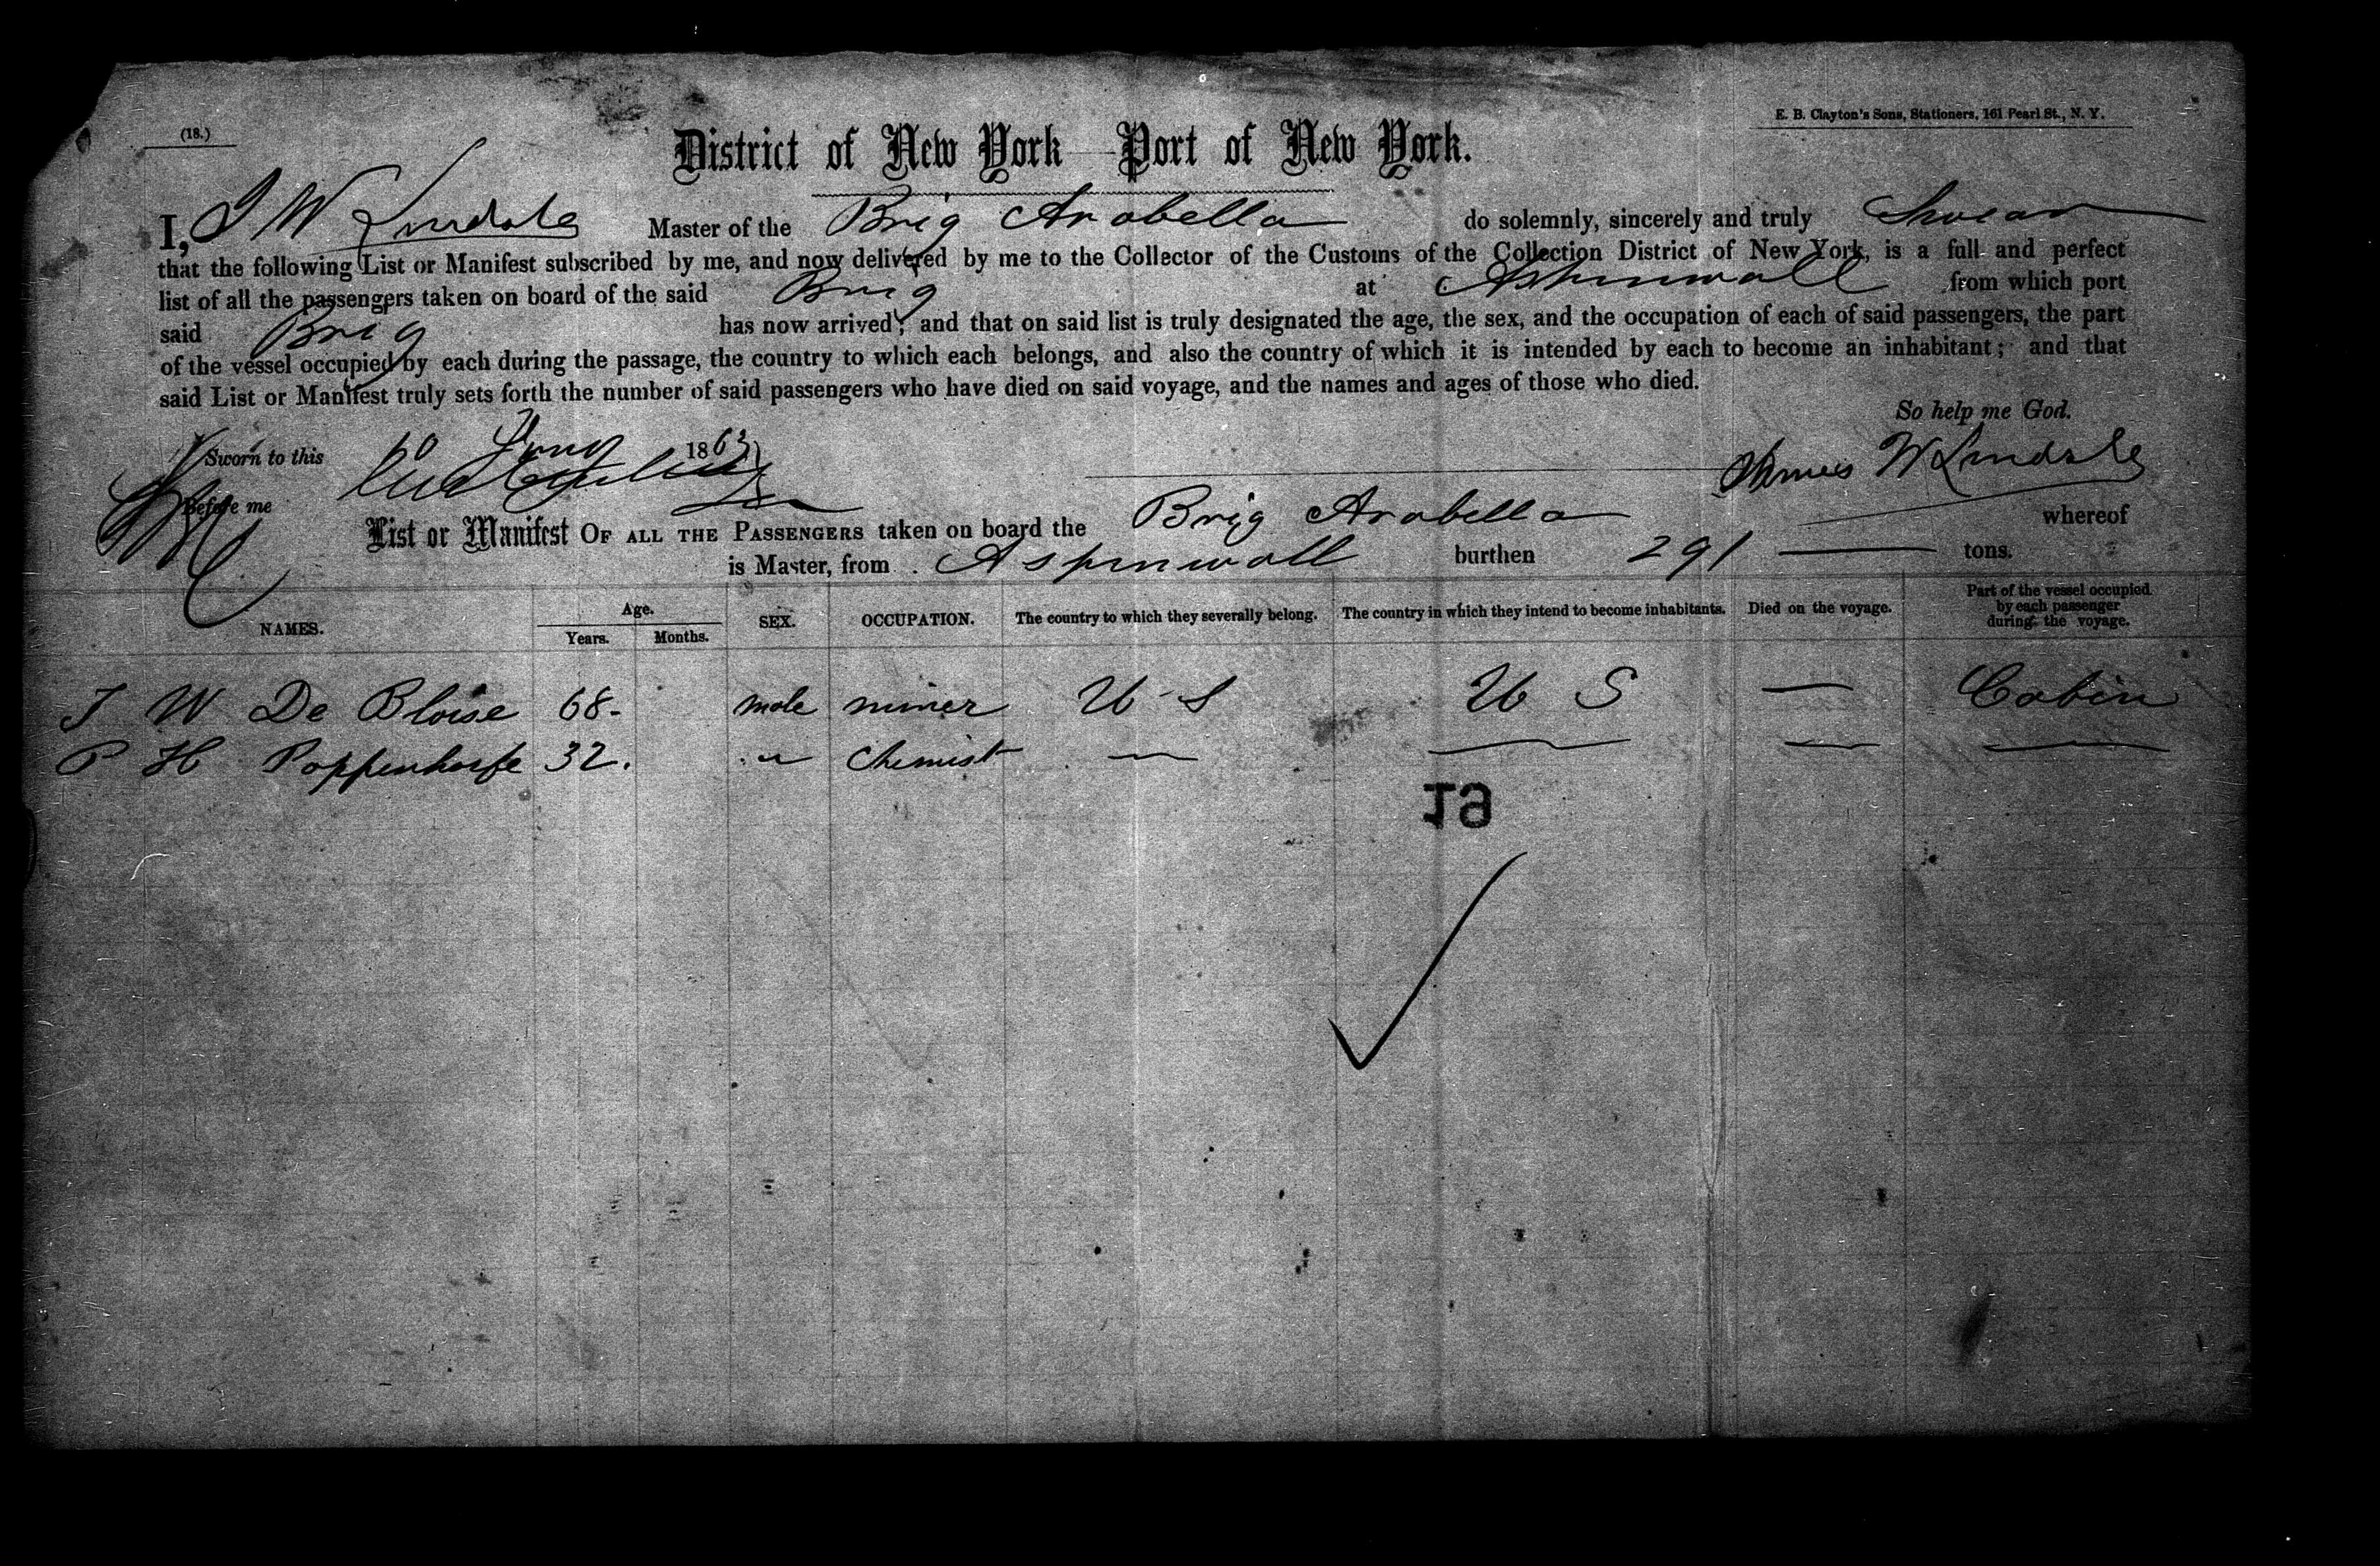 (18.)
E. B. Clayton's Sons, Stationers, 161 Pearl St., N. Y.
District of New York — Port of New York.
I, J W Lindale Master of the Brig Arabella do solemnly, sincerely and truly Swear
that the following List or Manifest subscribed by me, and now delivered by me to the Collector of the Customs of the Collection District of New York, is a full and perfect
list of all the passengers taken on board of the said Brig at Ashinwall from which port
said Brig has now arrived; and that on said list is truly designated the age, the sex, and the occupation of each of said passengers, the part
of the vessel occupied by each during the passage, the country to which each belongs, and also the country of which it is intended by each to become an inhabitant; and that
said List or Manifest truly sets forth the number of said passengers who have died on said voyage, and the names and ages of those who died.
So help me God.
Sworn to this 1863
James W Lindale
Before me
List or Manifest OF ALL THE PASSENGERS taken on board the Brig Arabella whereof
is Master, from Aspinwall burthen 291 tons.
NAMES. Age. Years. Months. SEX. OCCUPATION. The country to which they severally belong. The country in which they intend to become inhabitants. Died on the voyage. Part of the vessel occupied by each passenger during the voyage.
J W De Bloise 68- male miner U S U S — Cabin
P H 32. " Chemist — — — —
19